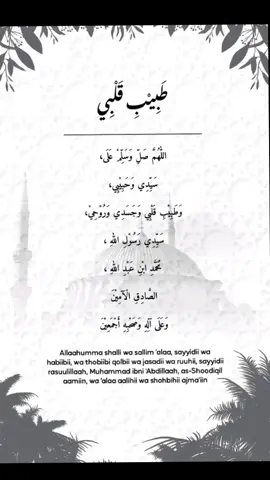 طَبِيْبِ قَلْبِي
اللّٰهُمَّ صَلِّ وَسَلِّمْ عَلَى،
سَيِّدِي وَحَبِيْبِي،
وَطَبِيْبِ قَلْبِي وَجَسَدِي وَرُوْحِيْ،
سَيِّدِي رَسُوْلِ اللهِ ،
مُحَمَّدِ ابْنِ عَبْدِ اللهِ ،
الصَّادِقِ الْأَمِيْنَ
وَعَلَى آلِهِ وَصَحْبِهِ أَجْمَعِيْنَ
Allaahumma shalli wa sallim 'alaa, sayyidii wa
habiibii, wa thobiibi qolbii wa jasadii wa ruuhii, sayyidii
rasuulillaah, Muhammad ibni 'Abdillaah, as-Shoodiqil
aamiin, wa 'alaa aalihii wa shohbihii ajma'iin